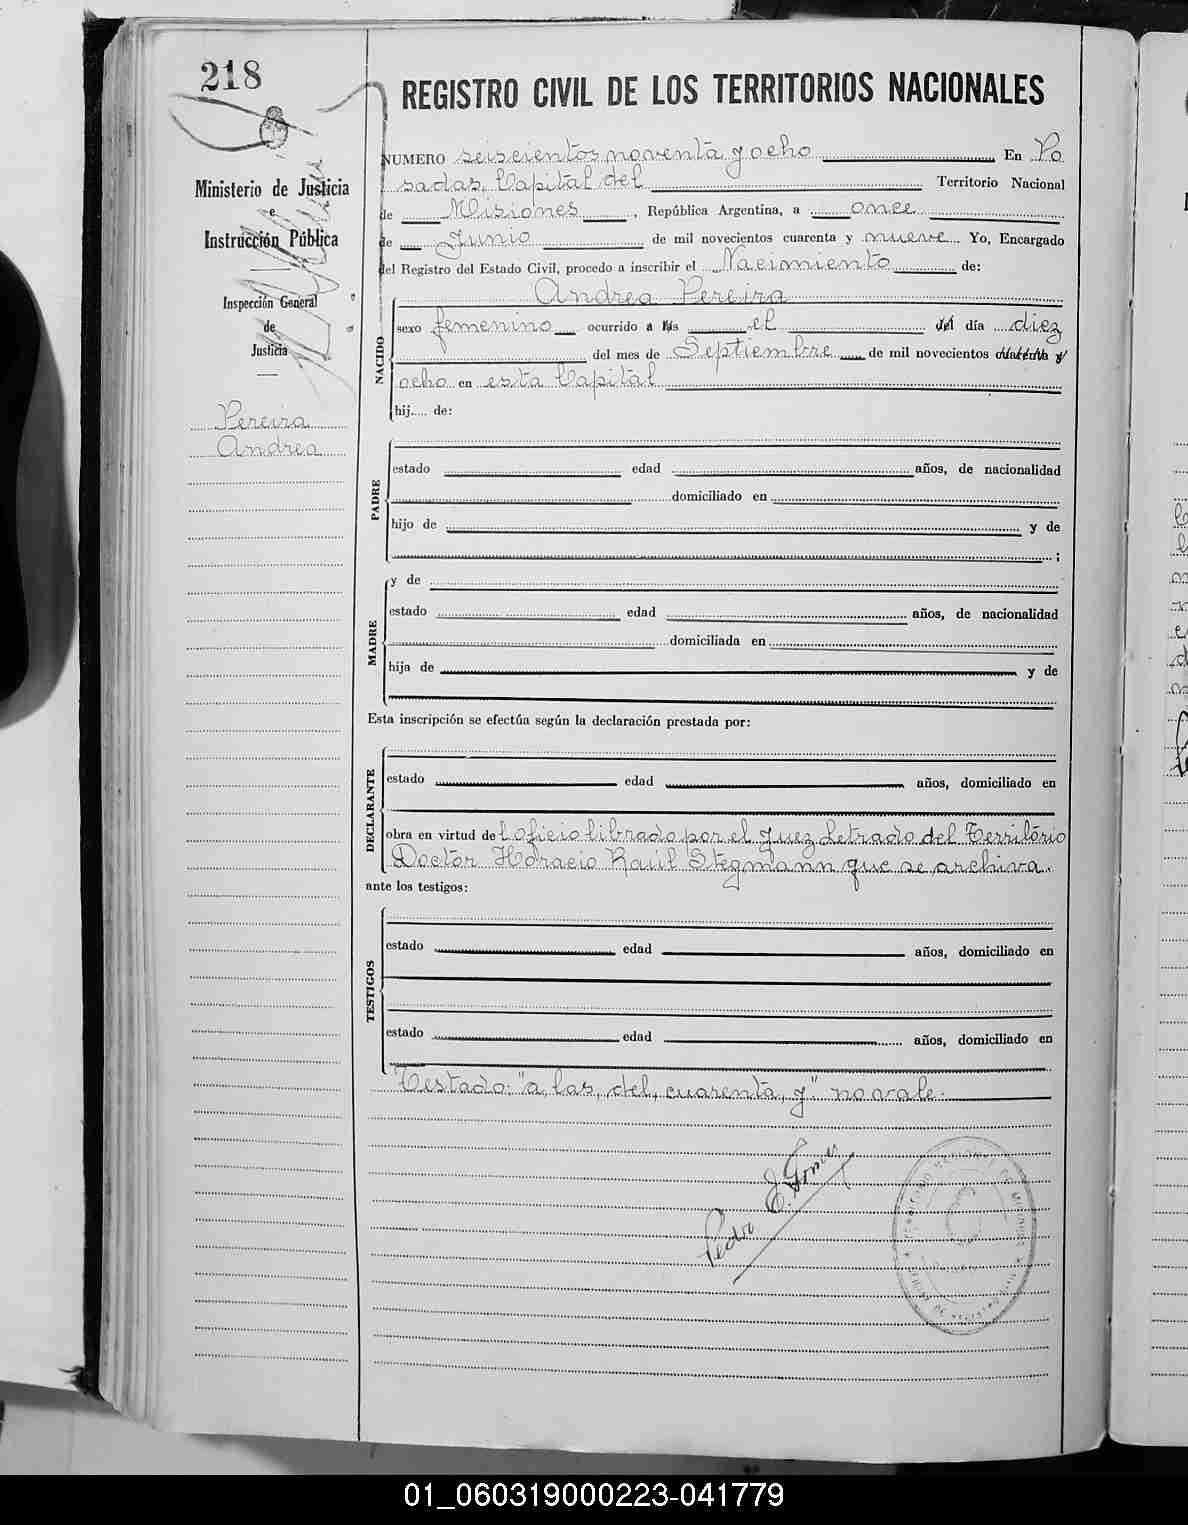 218
REGISTRO CIVIL DE LOS TERRITORIOS NACIONALES
Ministerio de Justicia
e
Instrucción Pública
Inspección General
de
Justicia
Pereira
Andrea
NUMERO seiscientos noventa y ocho En Po
sadas, Capital del Territorio Nacional
de Misiones, República Argentina, a once
de Junio de mil novecientos cuarenta y nueve Yo, Encargado
del Registro del Estado Civil, procedo a inscribir el Nacimiento de:
NACIDO
Andrea Pereira
sexo femenino ocurrido a las el del día diez
del mes de Septiembre de mil novecientos cuarenta y
ocho en esta Capital
hij..... de:
PADRE
estado edad años, de nacionalidad
domiciliado en
hijo de y de
;
MADRE
y de
estado edad años, de nacionalidad
domiciliada en
hija de y de
Esta inscripción se efectúa según la declaración prestada por:
DECLARANTE
estado edad años, domiciliado en
obra en virtud del oficio librado por el Juez Letrado del Territorio
Doctor Horacio Raúl Stegmann que se archiva.
ante los testigos:
TESTIGOS
estado edad años, domiciliado en
estado edad años, domiciliado en
Testado: "a, las, del, cuarenta, y" no vale.
Pedro E.
01_060319000223-041779